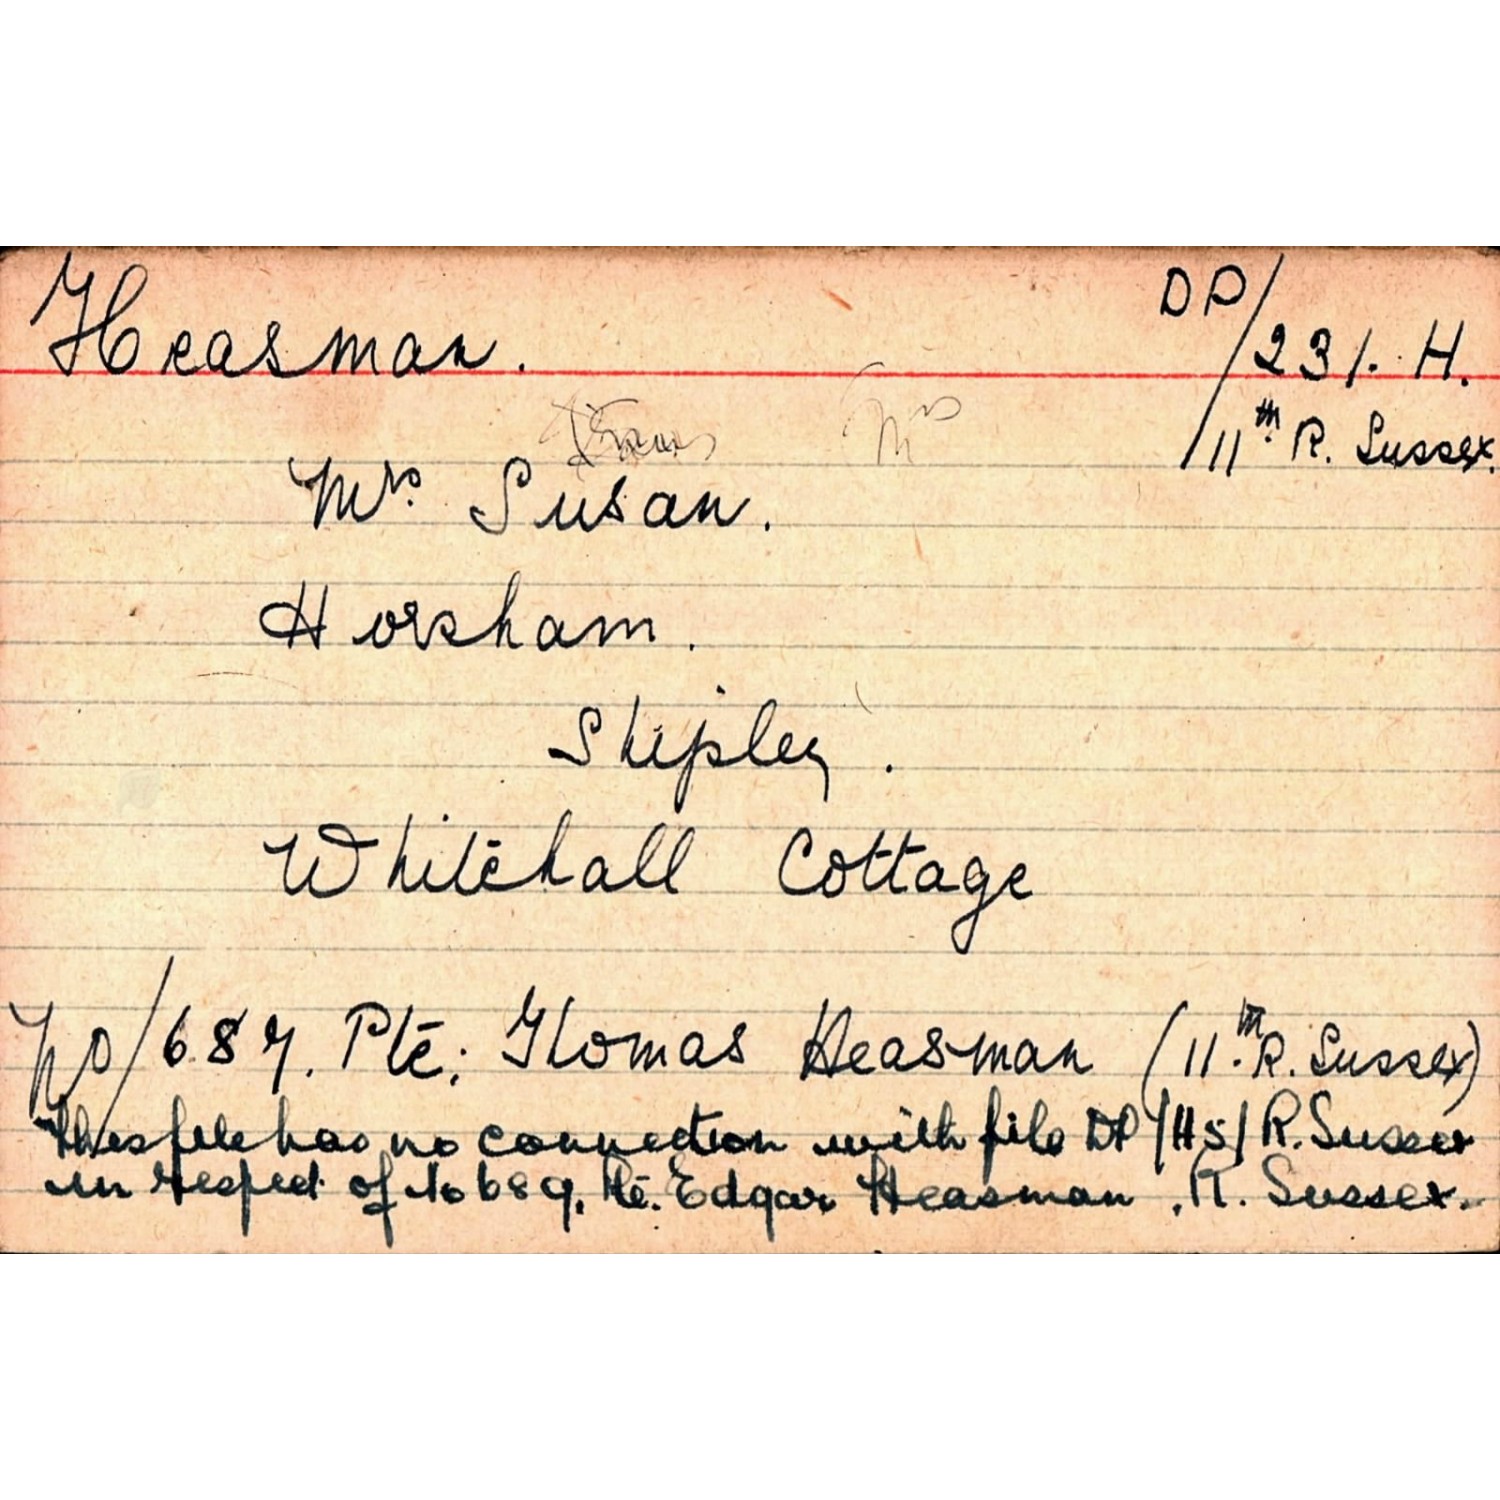 Heasman.
DP/231. H.
11th R. Sussex.
Mrs
Mrs. Susan.
Horsham.
Shipley.
Whitehall Cottage
No/687. Pte. Thomas Heasman (11th R. Sussex)
This file has no connection with file DP/H5/R. Sussex
in respect of No 689. Pte. Edgar Heasman. R. Sussex.